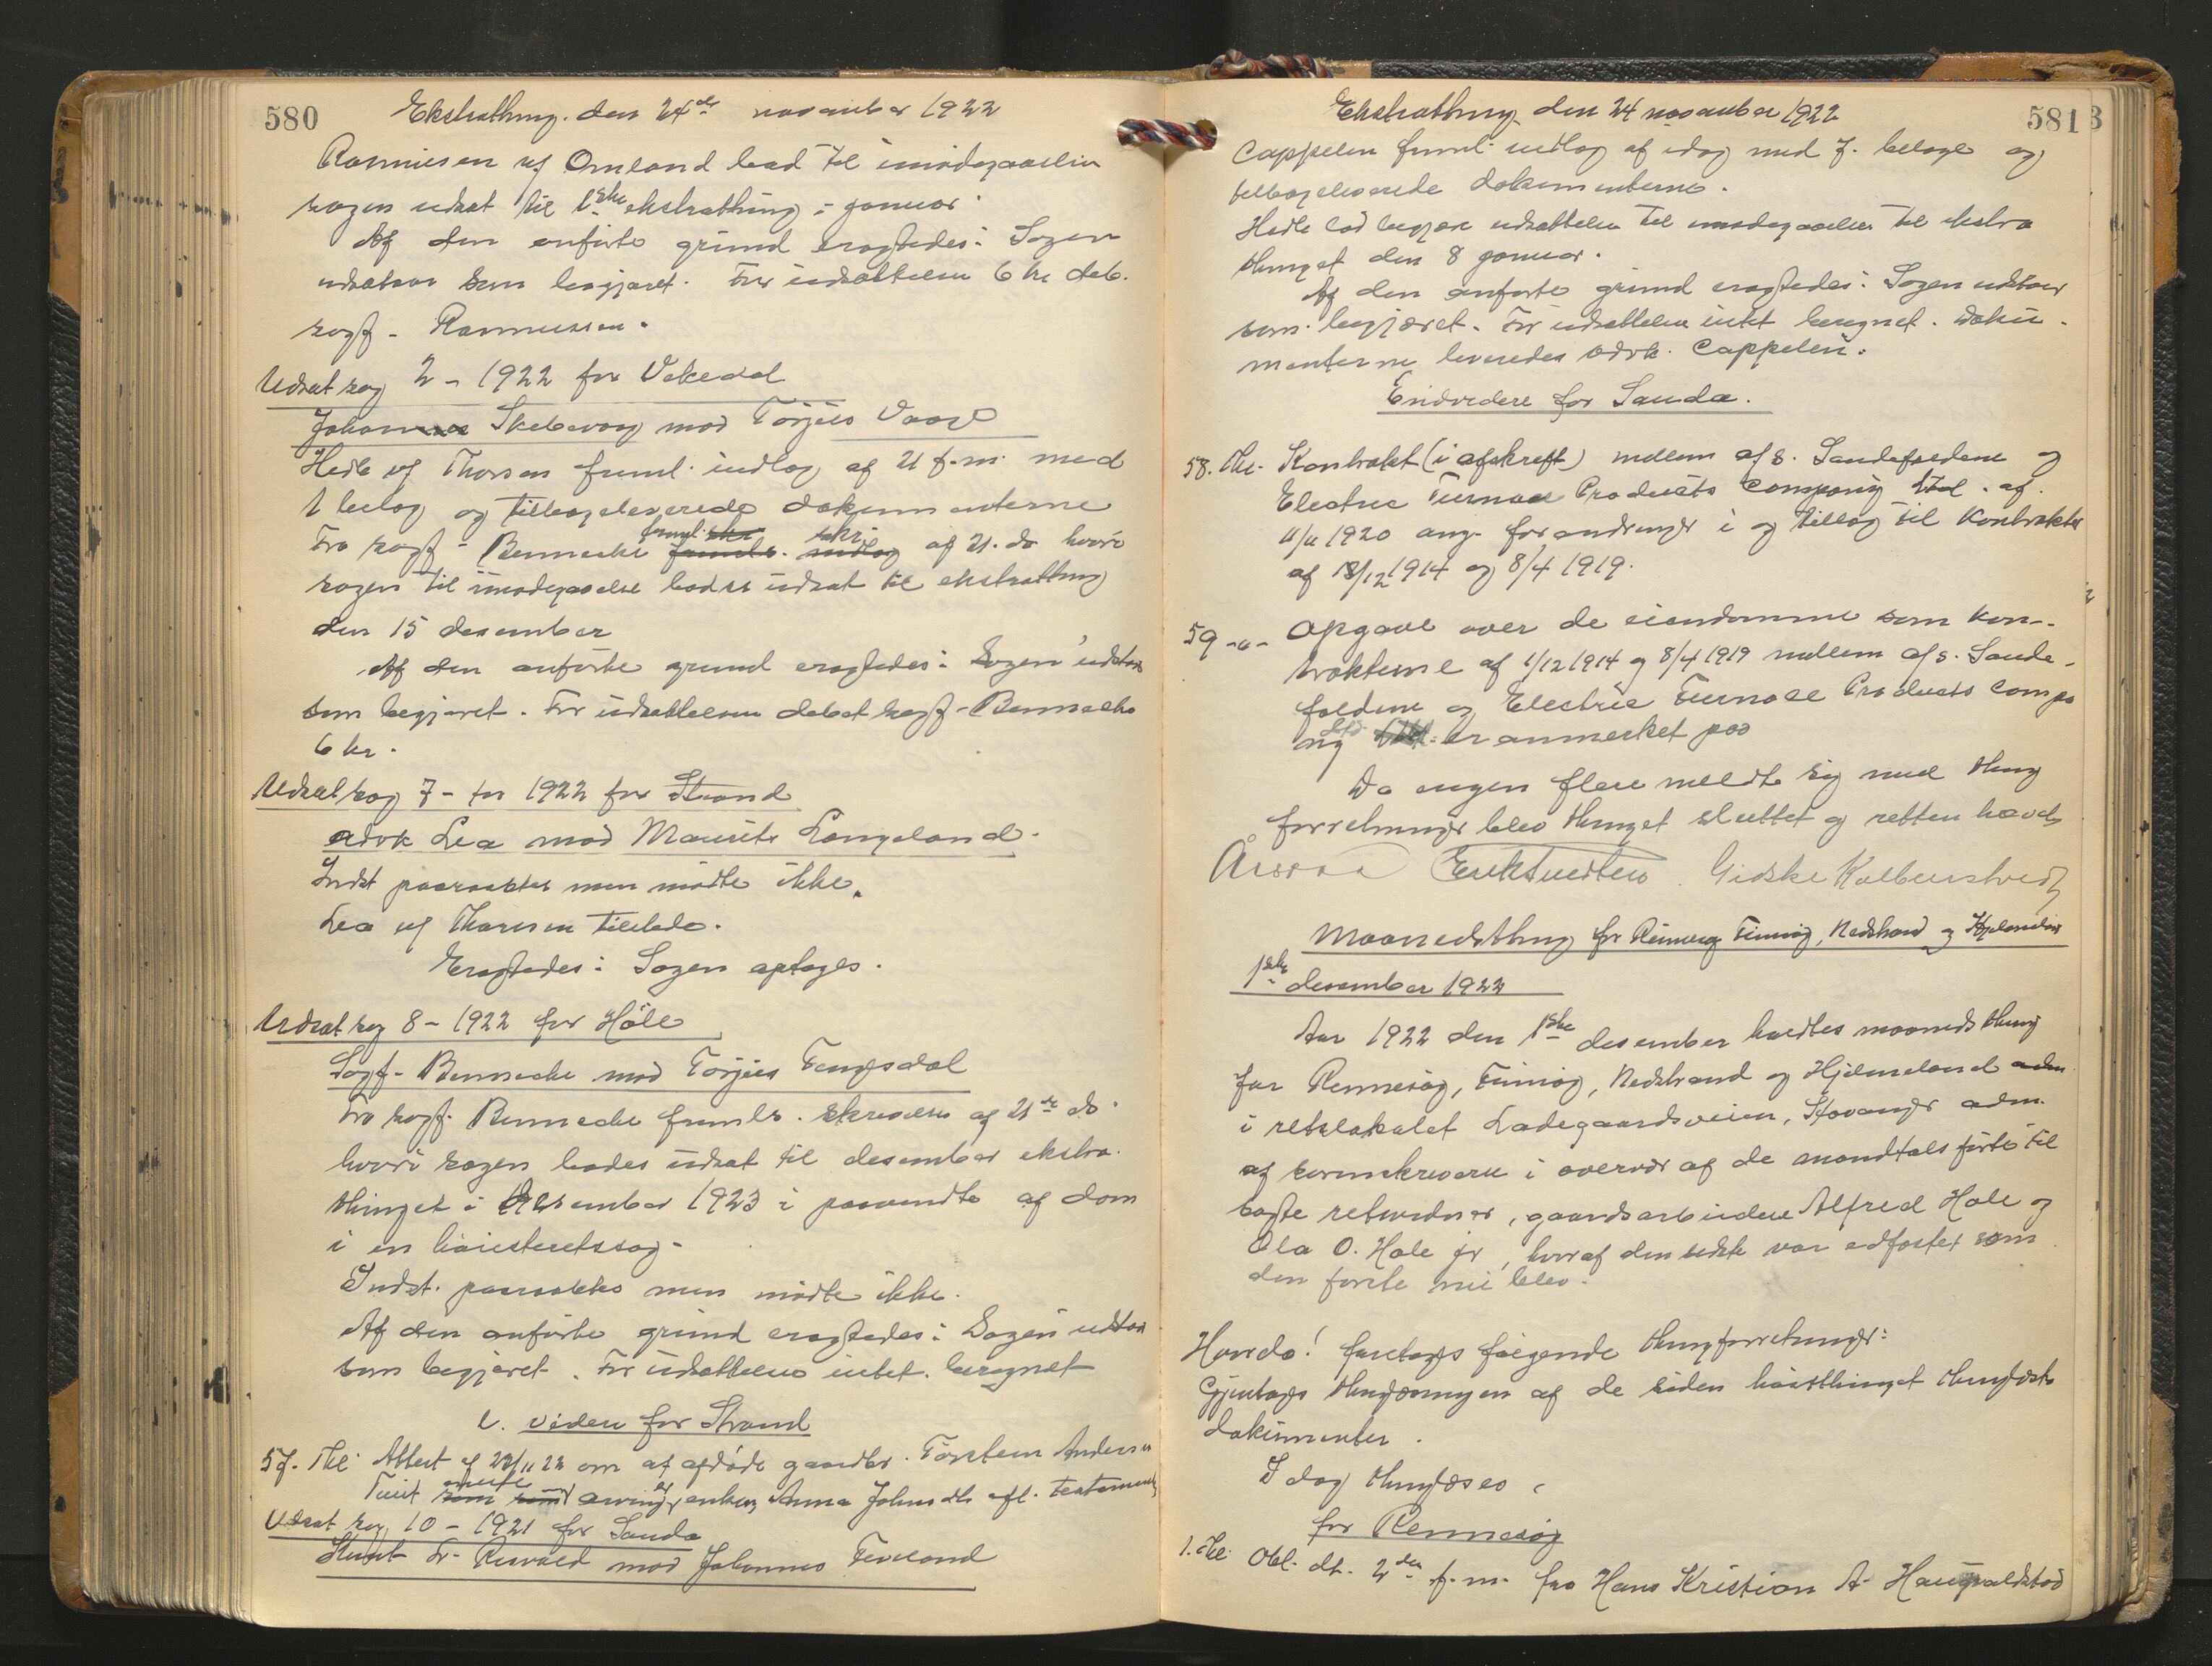 580
Ekstratthing. den 24de november 1922
Rasmussen vf Omland bad til imødegaaelse
sagen udsat til 1ste ekstratthing i januar.
Af den anførte grund eragtedes: Sagen
udsættes som begjæret. For udsættelsen 6 kr deb.
sagf. Rasmussen.
Udsat sag 2 - 1922 for Vikedal
Johannes Skebevaag mod Törjus Vaage
Hedle vf Thorsen freml. indlæg af 21 f.m. med
1 bilag og tilbageleverede dokumenterne
Fra sagf. Bennecke freml. skr af 21. ds hvori
sagen til imødegaaelse bades udsat til ekstratthing
den 15 desember
Af den anførte grund eragtedes: Sagen udstaar
som begjæret. For udsættelsen debet sagf. Bennecke
6 kr.
Udsat sag 7 - for 1922 for Strand
advk Lea mod Maurits Langeland.
Indst paaraabtes men mødte ikke.
Lea vf Thorsen tilstede.
Eragtedes: Sagen optages.
Udsat sag 8 - 1922 for Høle
Sagf. Bennecke mod Törjus Tengesdal
Fra sagf. Bennecke fremls. skrivelse af 21de ds.
hvori sagen bades udsat til desember ekstra.
thinget i desember 1923 i paavendte af dom
i en høiesteretssag.
Indst. paaraabtes men mødte ikke.
Af den anførte grund eragtedes: Sagen udstaar
som begjæret. For udsættelsen intet beregnet
e. videre for Strand
57. Thl. Attest af 22/11 22 om at afdøde gaardbr. Torstein Andersen
Tveit eneste arving er enken Anna Johnsdtr efl. testamente
Udsat sag 10 - 1921 for Sauda
Skibst Dr. Risvold mod Johannes Tveland
581
Ekstratthing den 24 november 1922
Cappelen freml. indlæg af idag med 7. bilage og
tilbageleverede dokumenterne.
Hedle lod begjære udsættelse til imødegaaelse til ekstra
thinget den 8 januar.
Af den anførte grund eragtedes: Sagen udstaar
som begjæret. For udsættelsen intet beregnet. Doku-
menterne leveredes advk. Cappelen.
Endvidere for Sauda.
58. Thl. Kontrakt (i afskrift) mellem a/s. Saudefaldene og
Electric Furnace Products Company Ltd. af
11/11 1920 ang. forandringer i og tillæg til kontrakter
af 18/12 1914 og 8/4 1919.
59 -"- Opgave over de eiendomme som kon-
trakterne af 1/12 1914 og 8/4 1919 mellem a/s. Saude-
faldene og Electric Furnace Products Compa
ny Ltd. er anmerket paa
Da ingen flere meldte sig med thing
forretninger blev thinget sluttet og retten hævd
Erik Tuedten Gidske Kolbeinstvedt
Maanedsthing for Rennesøy Finnøy, Nedstrand og Hjelmeland
1ste desember 1922
Aar 1922 den 1ste desember holdtes maanedsthing
for Rennesøy, Finnøy, Nedstrand og Hjelmeland
i retslokalet Ladegaardsveien, Stavanger adm.
af sorenskriveren i overvær af de mandtalsførte til
tagte retsvidner, gaardsarbeidere Alfred Hole og
Ola O. Hole jr, hvoraf den sidste var edfæstet som
den første nu blev.
Hvorda! foretages følgende thingforretninger:
Gjentages thinglæsningen af de siden høstthinget thinglæste
dokumenter.
I dag thinglæses
for Rennesøy
1. Thl. Obl. dt. 2den f.m. fra Hans Kristian A. Haugvaldstad